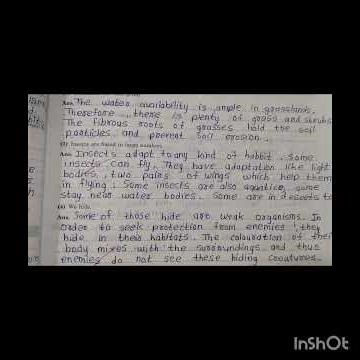 Ans. The water availability is ample in grasslands.
Therefore, there is plenty of grass and shrubs.
The fibrous roots of grasses hold the soil
particles and prevent soil erosion.
(3) Insects are found in large numbers.
Ans. Insects adapt to any kind of habbit. Some
insects can fly. They have adaptation like light
bodies, two pairs of wings which help them
in flying. Some insects are also aquatic, some
stay near water bodies. Some are in deserts to
(4) We hide.
Ans. Some of those hide are weak organisms. In
order to seek protection from enemies, they
hide in their habitats. The colouration of their
body mixes with the surroundings and thus
enemies do not see these hiding creatures.
InShOt